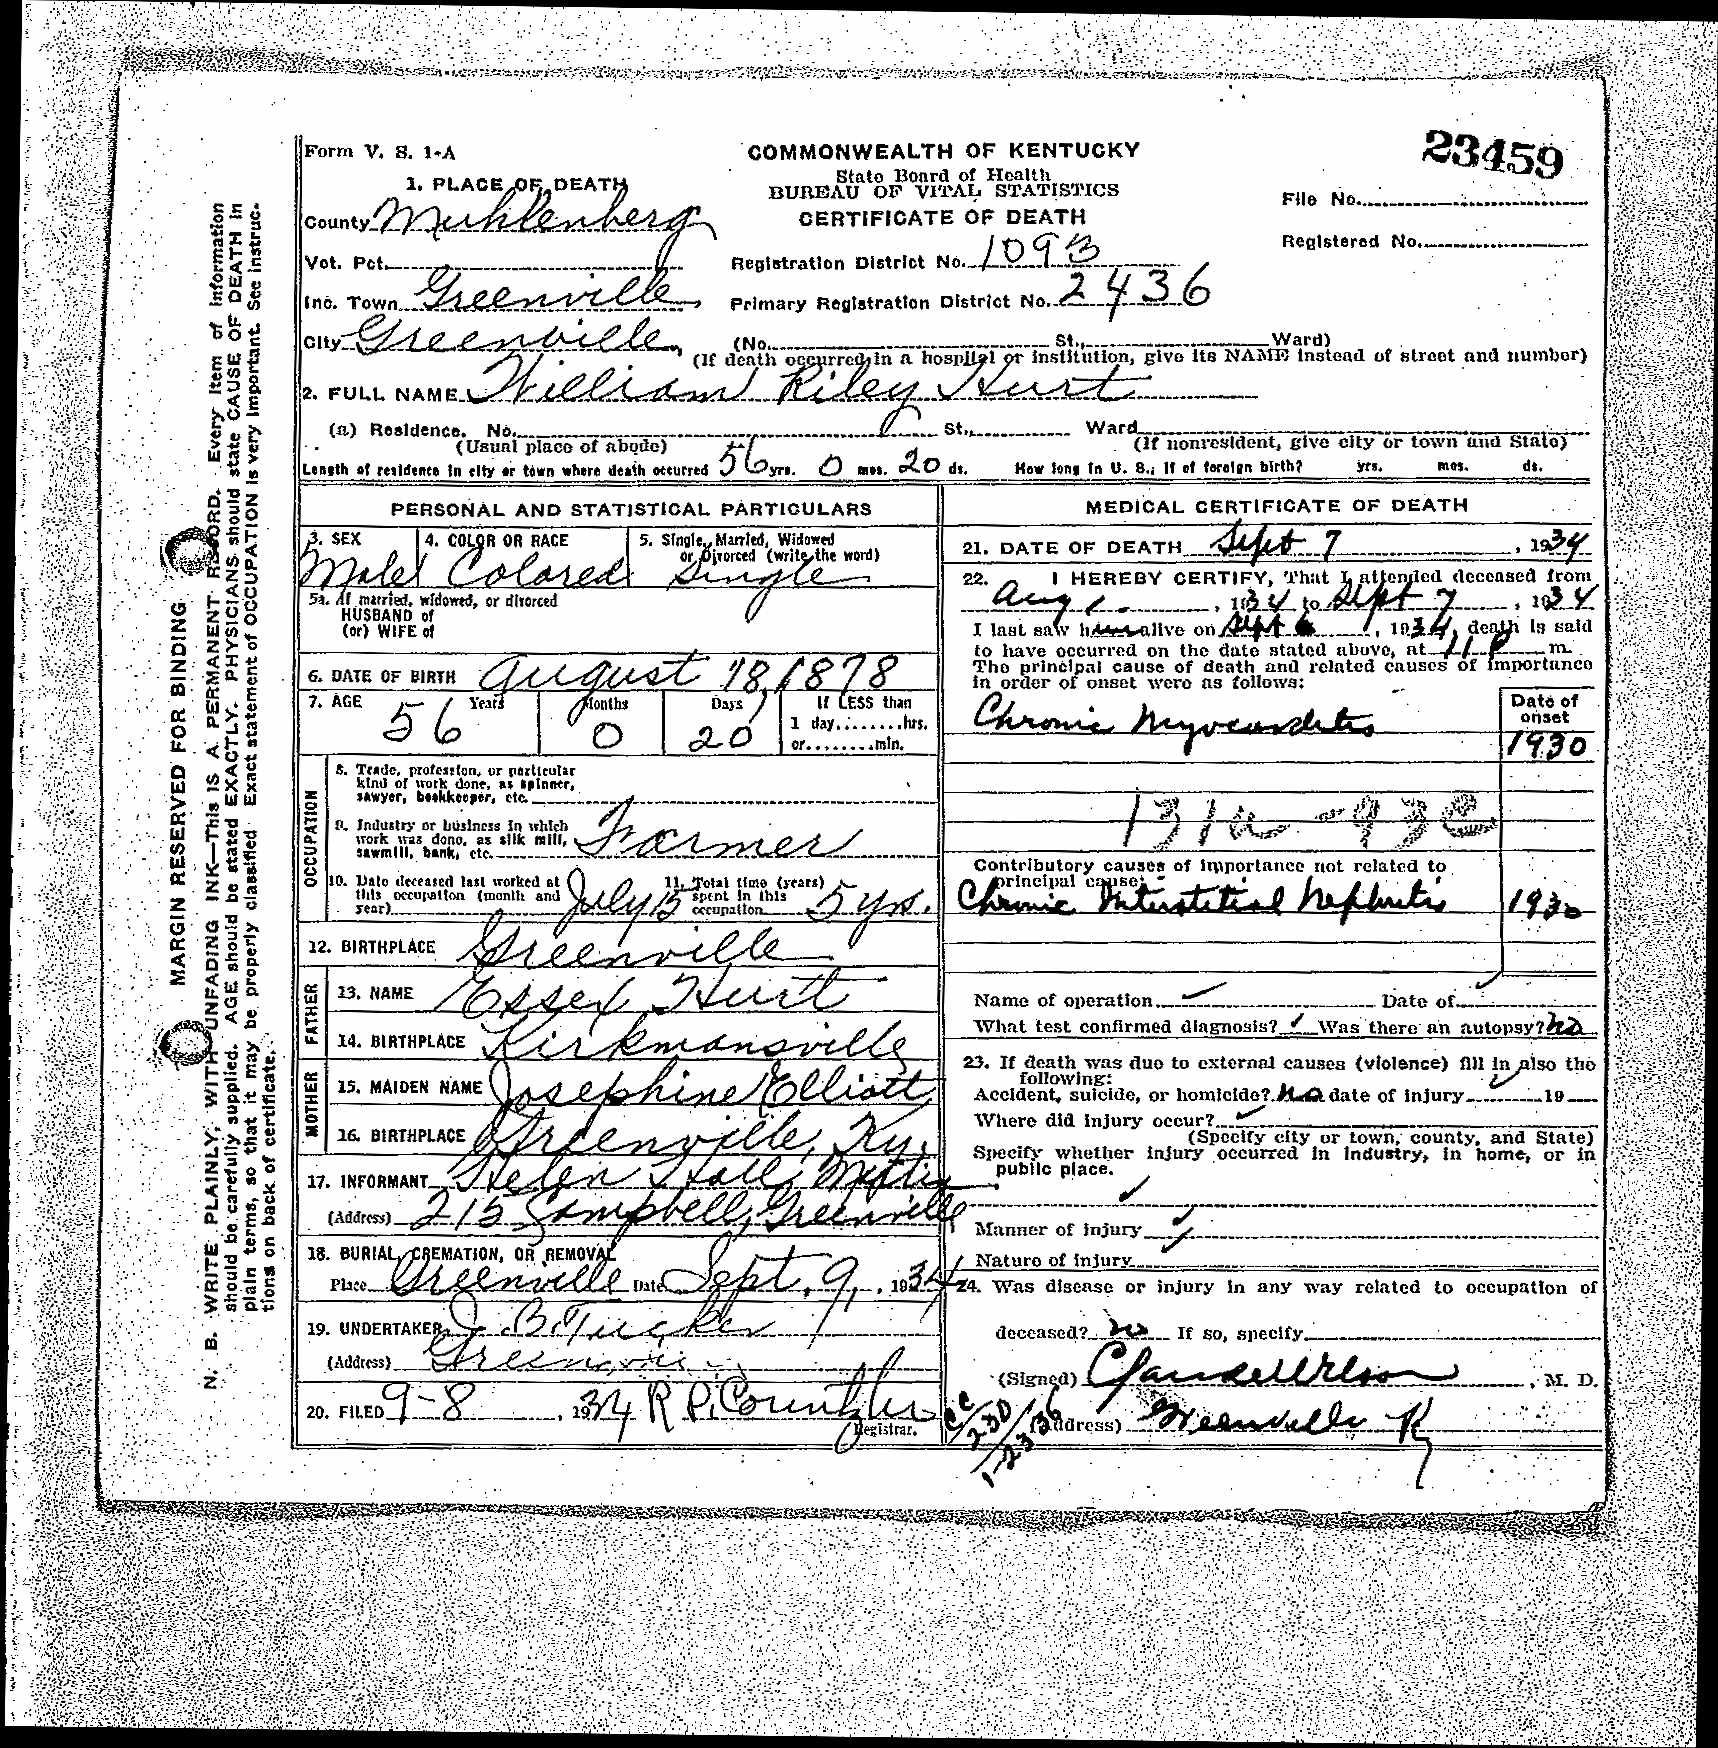 Form V. S. 1-A
COMMONWEALTH OF KENTUCKY
State Board of Health
BUREAU OF VITAL STATISTICS
CERTIFICATE OF DEATH
23459
File No.
Registered No.
1. PLACE OF DEATH
County Muhlenberg
Vot. Pct.
Registration District No. 1093
Inc. Town Greenville
Primary Registration District No. 2436
City Greenville, (No. St., Ward)
(If death occurred in a hospital or institution, give its NAME instead of street and number)
2. FULL NAME William Riley Hurt
(a) Residence. No. St., Ward
(Usual place of abode) (If nonresident, give city or town and State)
Length of residence in city or town where death occurred 56 yrs. 0 mos. 20 ds. How long in U. S., if of foreign birth? yrs. mos. ds.
PERSONAL AND STATISTICAL PARTICULARS
3. SEX Male
4. COLOR OR RACE Colored
5. Single, Married, Widowed or Divorced (write the word) Single
5a. If married, widowed, or divorced
HUSBAND of
(or) WIFE of
6. DATE OF BIRTH August 18, 1878
7. AGE 56 Years 0 Months 20 Days If LESS than
1 day,.......hrs.
or........min.
OCCUPATION
8. Trade, profession, or particular
kind of work done, as spinner,
sawyer, bookkeeper, etc.
9. Industry or business in which
work was done, as silk mill,
sawmill, bank, etc. Farmer
10. Date deceased last worked at
this occupation (month and
year) July 15
11. Total time (years)
spent in this
occupation 5 yrs.
12. BIRTHPLACE Greenville
FATHER
13. NAME Essex Hurt
14. BIRTHPLACE Kirkmansville
MOTHER
15. MAIDEN NAME Josephine Elliott
16. BIRTHPLACE Greenville, Ky.
17. INFORMANT Helen Hall
(Address) 215 Campbell, Greenville
18. BURIAL, CREMATION, OR REMOVAL
Place Greenville Date Sept. 9, 1934
19. UNDERTAKER J. B. Tucker
(Address)
20. FILED 9-8, 1934 R P.
Registrar.
MEDICAL CERTIFICATE OF DEATH
21. DATE OF DEATH Sept 7, 1934
22. I HEREBY CERTIFY, That I attended deceased from
Aug 1, 1934 to Sept 7, 1934
I last saw him alive on Sept 6, 1934, death is said
to have occurred on the date stated above, at 11 P m.
The principal cause of death and related causes of importance
in order of onset were as follows:
Date of
onset
Chronic Myocarditis 1930
131a - 93c
Contributory causes of importance not related to
principal cause:
Chronic Interstitial Nephritis 1930
Name of operation Date of
What test confirmed diagnosis? Was there an autopsy? no
23. If death was due to external causes (violence) fill in also the
following:
Accident, suicide, or homicide? no date of injury 19
Where did injury occur?
(Specify city or town, county, and State)
Specify whether injury occurred in industry, in home, or in
public place.
Manner of injury
Nature of injury
24. Was disease or injury in any way related to occupation of
deceased? no If so, specify
(Signed) Claude Wilson, M. D.
(Address) Greenville Ky
CC
230
1-23-36
MARGIN RESERVED FOR BINDING
N. B. WRITE PLAINLY, WITH UNFADING INK—THIS IS A PERMANENT RECORD. Every item of information
should be carefully supplied. AGE should be stated EXACTLY. PHYSICIANS should state CAUSE OF DEATH in
plain terms, so that it may be properly classified. Exact statement of OCCUPATION is very important. See instruc-
tions on back of certificate.